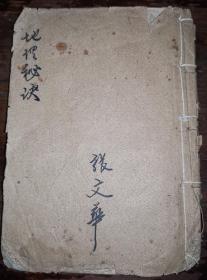 地理秘诀
張文華